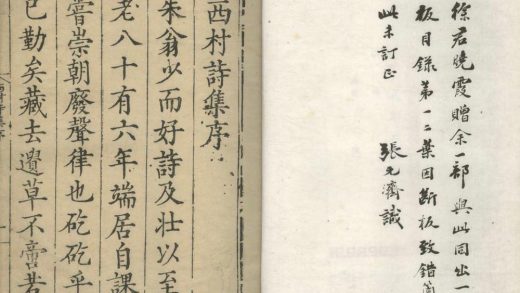 徐君曉霞贈余一部與此同出一
板目錄第一二葉因斷板致錯簡
此未訂正
張元濟識
西村詩集序
朱翁少而好詩及壯以至
老八十有六年端居自課
嘗崇朝廢聲律也矻矻乎
已勤矣藏去遺草不啻若